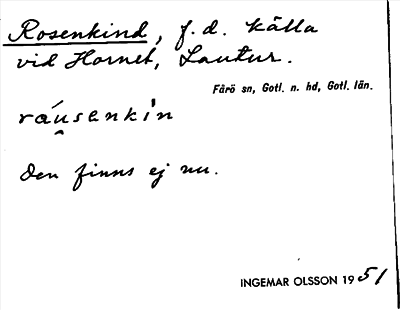 Rosenkind, f.d. källa
vid Hornet, Lautur.
Fårö sn, Gotl. n. hd, Gotl. län.
ráu̯senkìn
Den finns ej nu.
INGEMAR OLSSON 1951